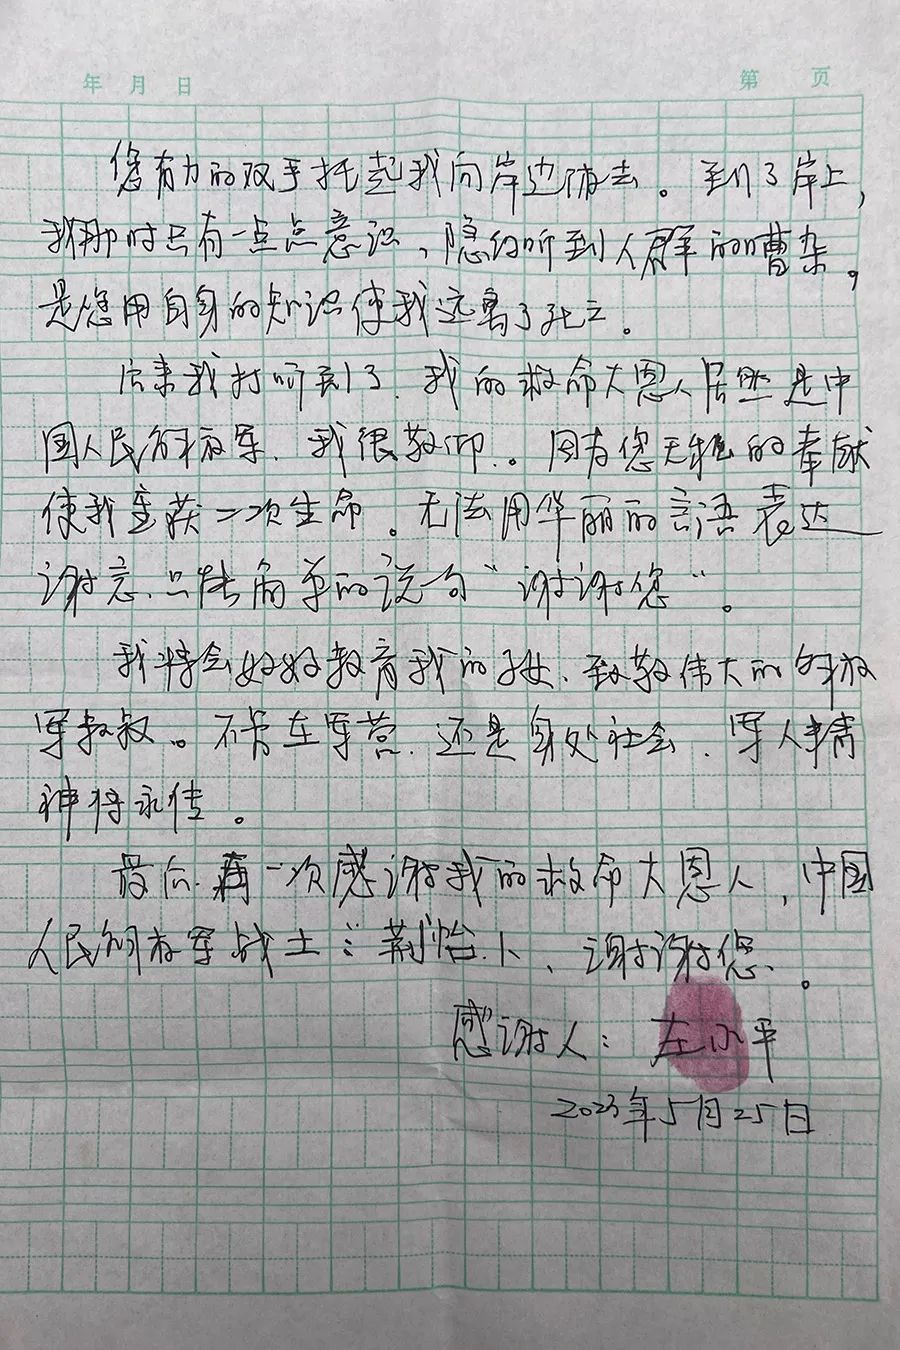 年 月 日 第 页
您有力的双手托起我向岸边游去。到了岸上，
我那时只有一点点意识，隐约听到人群的嘈杂。
是您用自身的知识使我远离了死亡。
后来我打听到了，我的救命大恩人居然是中
国人民解放军，我很敬仰。因为您无私的奉献
使我重获二次生命。无法用华丽的言语表达
谢意，只能简单的说一句“谢谢您”。
我将会好好教育我的子女，致敬伟大的解放
军叔叔。不管在军营，还是身处社会，军人精
神将永传。
最后，再一次感谢我的救命大恩人，中国
人民解放军战士：荆怡卜，谢谢您。
感谢人：左小平
2023年5月25日